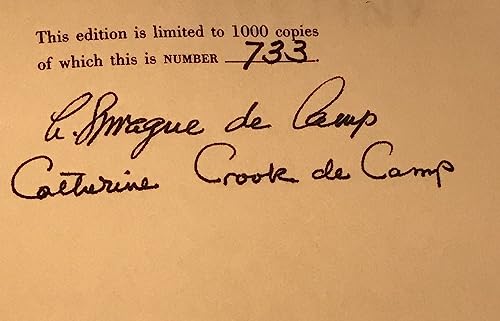 This edition is limited to 1000 copies
of which this is NUMBER 733.
L. Sprague de Camp
Catherine Crook de Camp